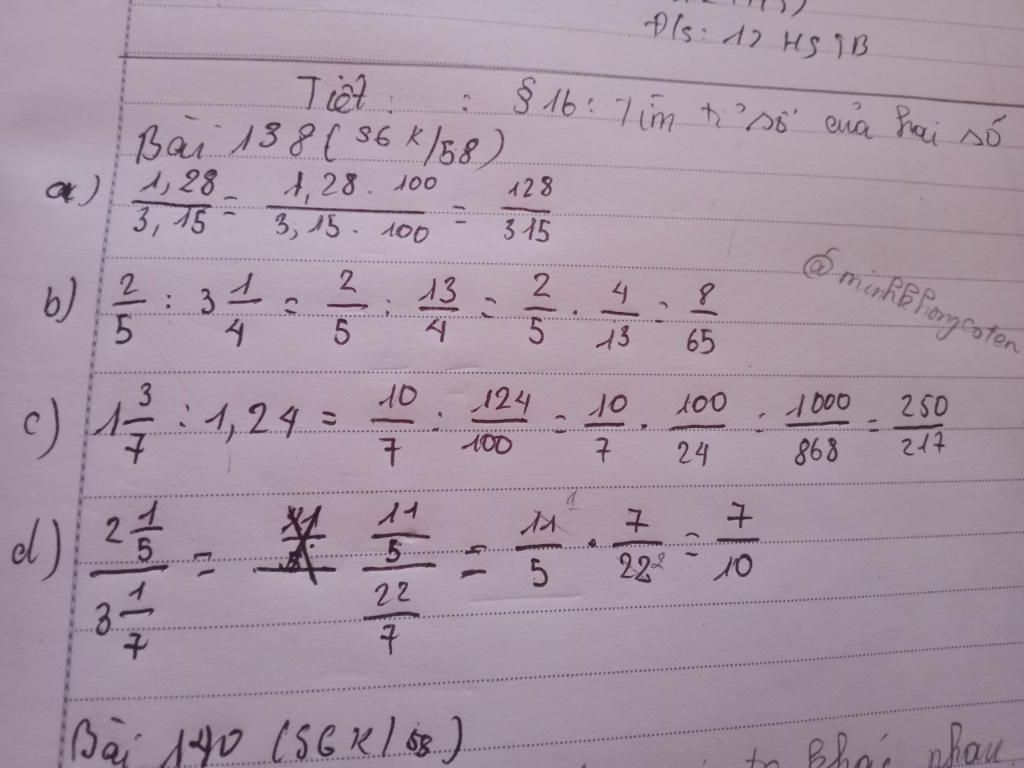 Đ/s: 12 HS 9B
Tiết : : § 16: Tìm tỉ số của hai số
Bài 138 (SGK/58)
a) 1,28/3,15 = 1,28 . 100/3,15 . 100 = 128/315
b) 2/5 : 3 1/4 = 2/5 : 13/4 = 2/5 . 4/13 = 8/65
c) 1 3/7 : 1,24 = 10/7 : 124/100 = 10/7 . 100/24 = 1000/868 = 250/217
d) 2 1/5 / 3 1/7 = 11/5 / 22/7 = 11/5 1 . 7/22 2 = 7/10
@minhkhongcoten
Bài 140 (SGK/58)
khác nhau